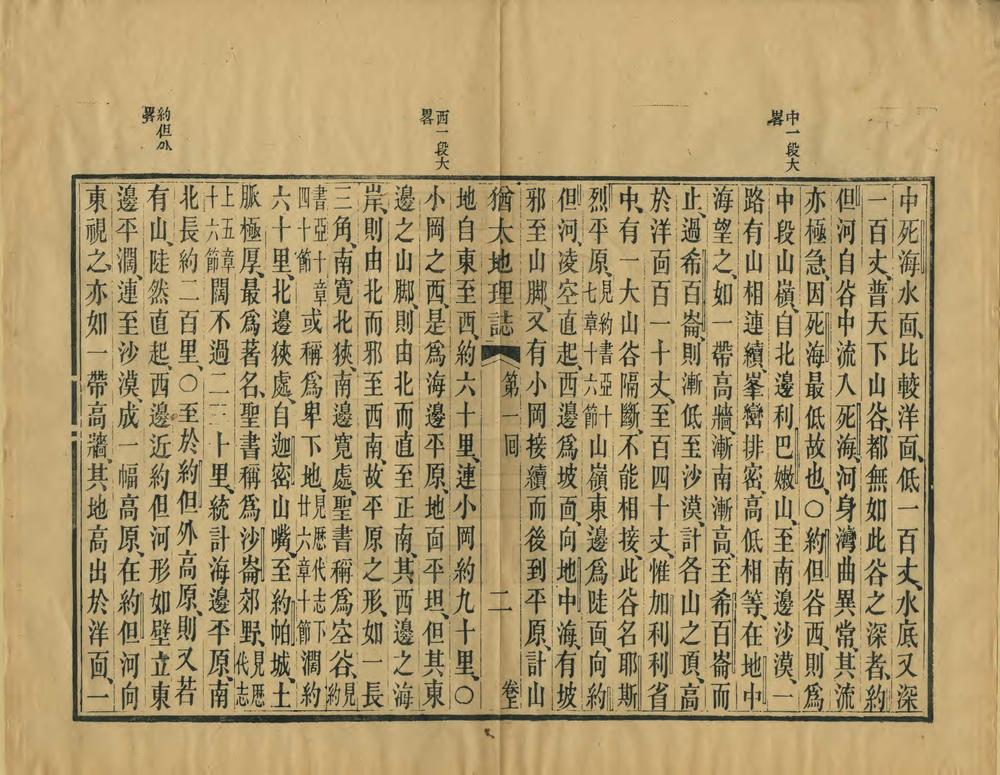 中一段大
畧
中、死海水面、比較洋面、低一百丈、水底又深
一百丈、普天下山谷、都無如此谷之深者、約
但河自谷中流入死海、河身灣曲異常、其流
亦極急、因死海最低故也、〇約但谷西則爲
中段山嶺、自北邊利巴嫩山、至南邊沙漠、一
路有山相連續、峯巒排密、高低相等、在地中
海望之、如一帶高牆、漸南漸高、至希百崙而
止、過希百崙、則漸低至沙漠、計各山之頂、高
於洋面百一十丈、至百四十丈、惟加利利省
中、有一大山谷隔斷、不能相接、此谷名耶斯
烈平原、見約書亞十七章十六節山嶺東邊爲陡面、向約
但河、凌空直起、西邊爲坡面、向地中海、有坡
邪至山脚、又有小岡接續而後到平原、計山
猶太地理誌 第一回 二 卷
西一段大
畧
地自東至西、約六十里、連小岡約九十里、〇
小岡之西、是爲海邊平原、地面平坦、但其東
邊之山脚、則由北而直至正南、其西邊之海
岸、則由北而邪至西南、故平原之形、如一長
三角、南寬北狹、南邊寬處、聖書稱爲空谷、見約
書亞十章四十節或稱爲卑下地、見歷代志下廿六章十節濶約
六十里、北邊狹處、自迦密山嘴、至約帕城、土
脈極厚、最爲著名、聖書稱爲沙崙郊野、見歷代志
上五章十六節闊不過二三十里、統計海邊平原、南
北長約二百里、〇至於約但外高原、則又若
約但外
畧
有山、陡然直起、西邊近約但河形如壁立、東
邊平濶、連至沙漠、成一幅高原、在約但河向
東視之、亦如一帶高牆、其地高出於洋面、一